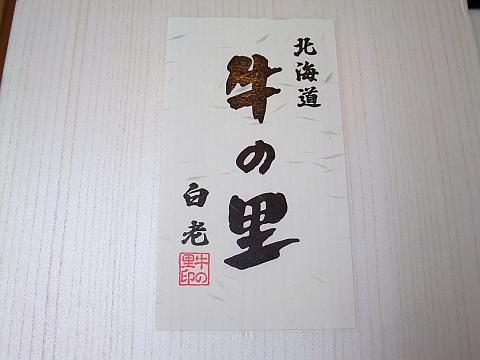 北海道
牛の里
白老
牛の里印